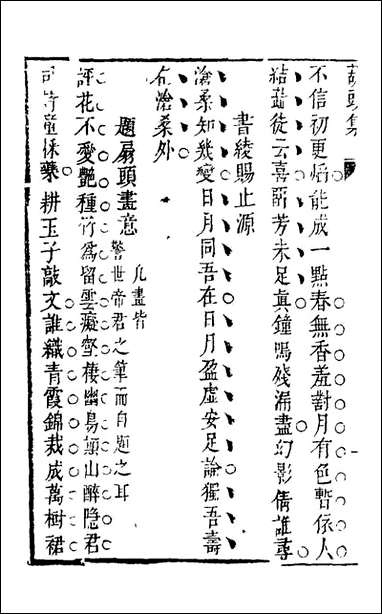 不信初更焰能成一點春無香羞對月有色暫依人
結蕋徒云喜開芳未足真鐘鳴殘漏盡幻影倩誰尋
書綾賜止源
滄桑知幾變日月同吾在日月盈虛安足論獨吾壽
在滄桑外
題扇頭畫意
凡畫皆
警世帝君之筆而自題之耳
評花不愛艷種竹為留雲癡壑棲幽鳥頭山醉隐君
童採藥耕玉子敲文誰織青霞錦裁成萬樹裙